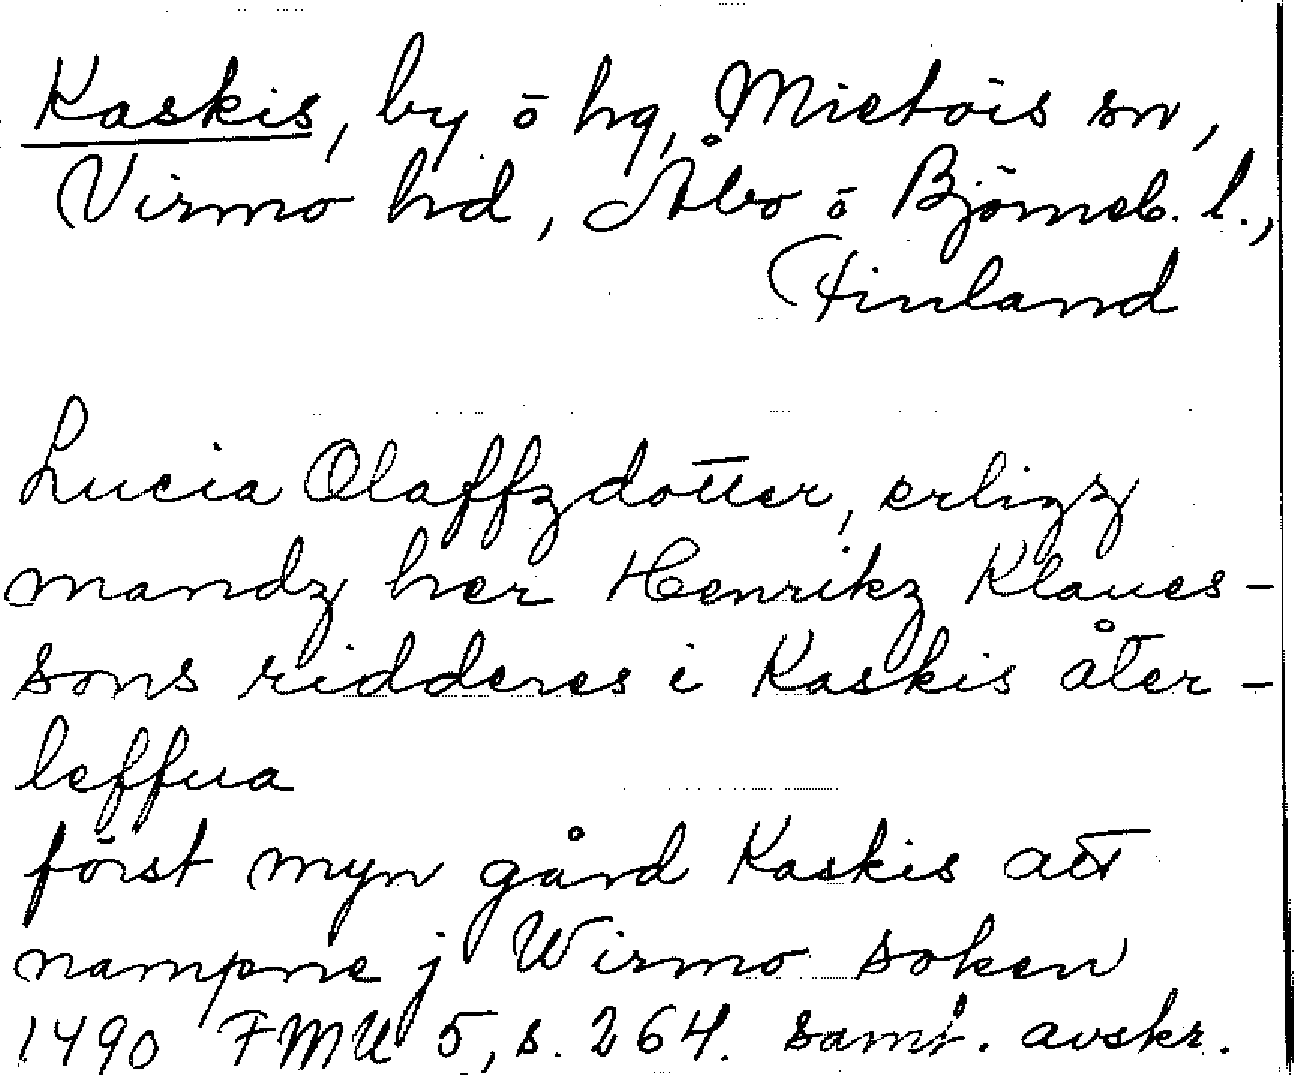 Kaskis, by ō hg, Mietois sn,
Virmo hd, Åbo ō Björneb. l.,
Finland
Lucia Olaffzdotter, erligz
mandz her Henrikz Klaues-
sons ridderes i Kaskis åter-
leffua
först myn gård Kaskis att
nampne j Wirmo soken
1490 FMU 5, s. 264. samt. avskr.